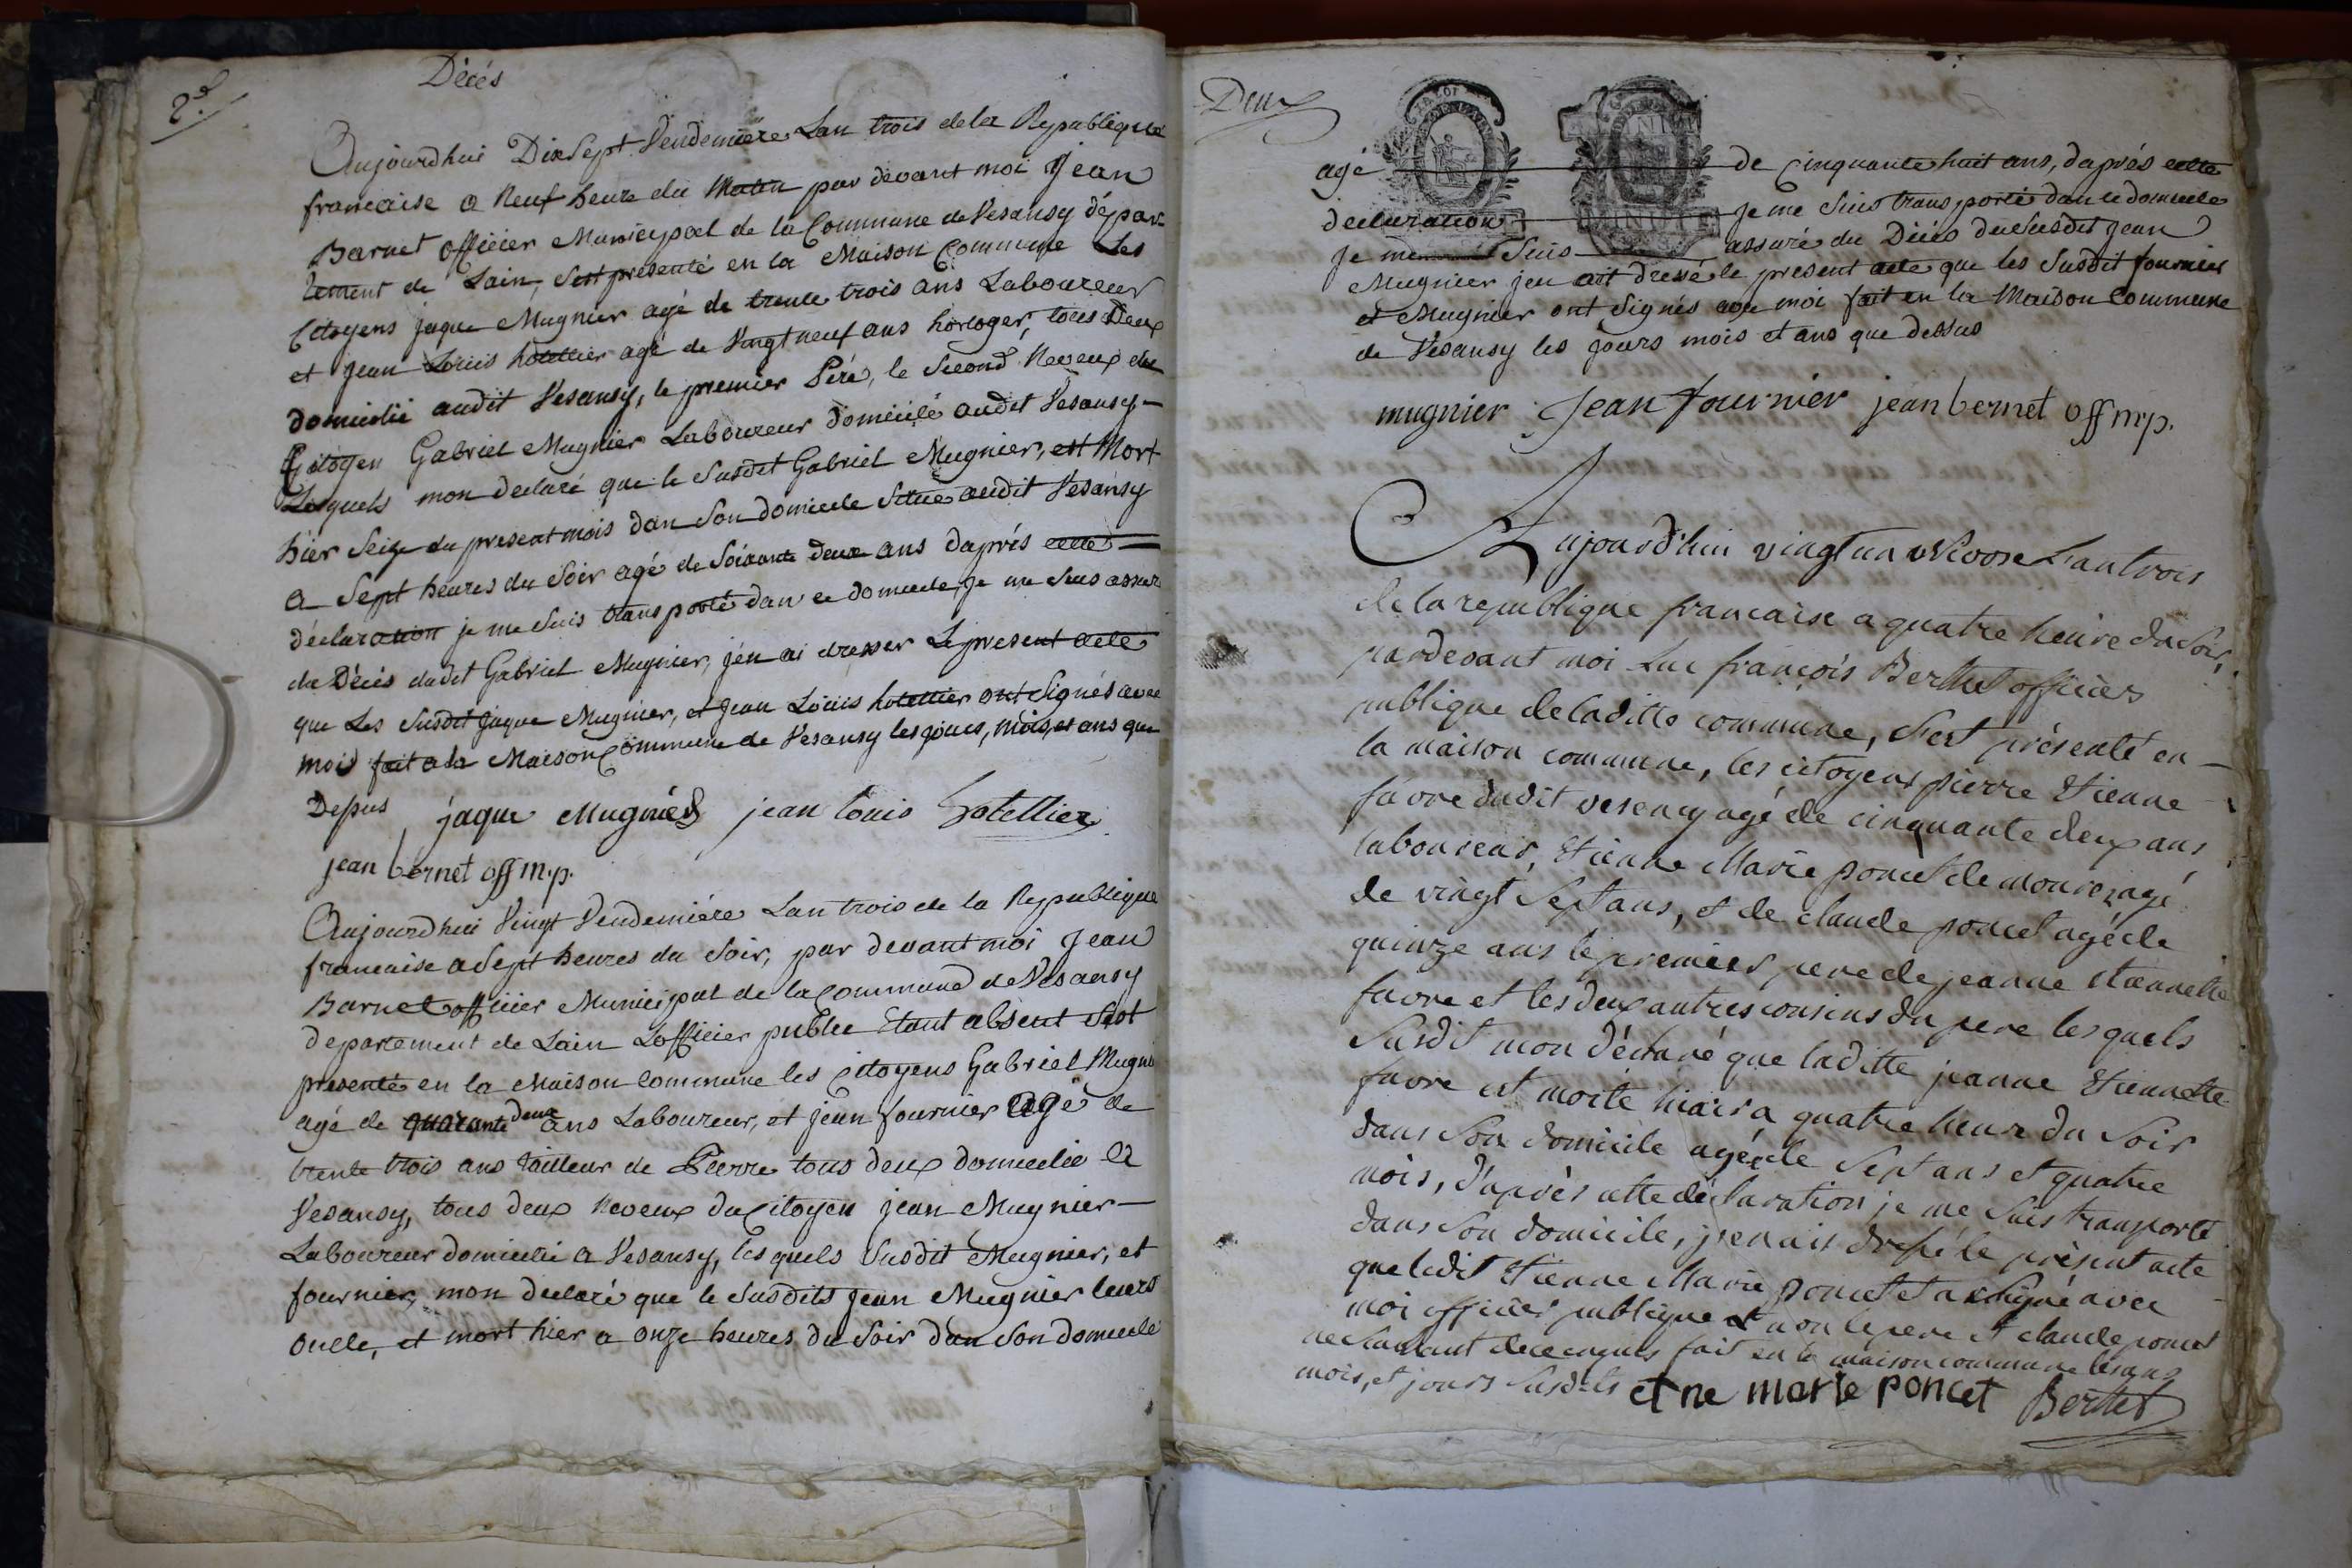 2.d
Décés
Aujourdhui Dix Sept Vendemiere Lan trois dela Republique
francaise a Neuf heure du Matin par devant moi Jean
Barnet officier Municipal de la Commune de Vesansy dépar-
tement de Lain, Sest presenté en la Maison Commune Les
Citoyens jaque Mugnier agé de trente trois ans Laboureur
et Jean Louis hotellier agé de Vingt neuf ans horloger, tous Deux
domicilié audit Vesansy, le premier Péré, le Second Neveux du
Citoyen Gabriel Mugnier Laboureur domicilé audit Vesansy -
Lesquels mon declaré que le Susdit Gabriel Mugnier, est Mort
hier Seize du present mois dan Son domicile Situé audit Vesansy
a Sept heures du Soir agé de Soixante deux ans daprés cette
déclaration je me Suis transporté dan ce domicile, je me Suis assuré
du Décés dudit Gabriel Mugnier, jén ai dresser Le present acte
que Les Susdit jaque Mugnier, et Jean Louis hotellier ont Signés avec
moi fait a la Maison Commune de Vesansy les jours, mois, et ans que
Depus jaque Mugnier jean louis hotellier
jean bernet off m.p.
Aujourdhui Vingt Vendemiére Lan trois de la Republique
francaise a Sept heures du Soir, par devant moi Jean
Barnet officier Municipal de la Commune de Vesansy
departement de Lain Lofficier public Etant absent Sest
presenté en la Maison Commune les Citoyens Gabriel Mugni
agé de quarante deux ans Laboureur, et jean fournier agé de
trente trois ans tailleur de Pierre tous deux domicilié a
Vesansy, tous deux Neveux du Citoyen jean Mugnier -
Laboureur domicilié a Vesansy, lesquels Susdit Mugnier, et
fournier, mon declaré que le Susdits Jean Mugnier leurs
oncle, et mort hier a onze heures du Soir dan Son domicile
Deux
agé de Cinquante huit ans, daprés cette
declaration je me Suis transporté dan ce domicile
MINUTE
je me Suis assuré du Décés du Susdit Jean
Mugnier jen ait dressé le present acte que les Susdit fournier
et Mugnier ont Signés avec moi fait en la Maison Commune
de Vesansy les jours mois et ans que dessus
mugnier Jean fournier jean bernet off m.p.
Aujourd'hui vingt un Nivose L'an trois
de la republique francaise a quatre heure du Soir,
pardevant moi Luc françois Berthet officier
publique deladitte commune, S'est présenté en -
la maison commune, les citoyens pierre Etienne
favre dudit vesency agé de cinquante deux ans
laboureur, Etienne Marie poncet de mourex agé
de vingt Sept ans, et de claude poncet agé de
quinze ans le premier pere de jeanne Etiennette
favre et les deux autres cousins du pere lesquels
Susdit mon déclaré que laditte jeanne Etiennette
favre est morte hier a quatre heur du Soir
dans Son domicile agée de Sept ans et quatre
mois, d'après cette déclaration je me Suis transporté
dans Son domicile, j'en ais drefsé le présent acte
que ledit Etienne Marie poncet a Signé avec
moi officier publique et non le pere et claude poncet
ne Sachant de ce enquis fait en la maison commune les ans
mois, et jours Susdits et ne marie poncet Berthet